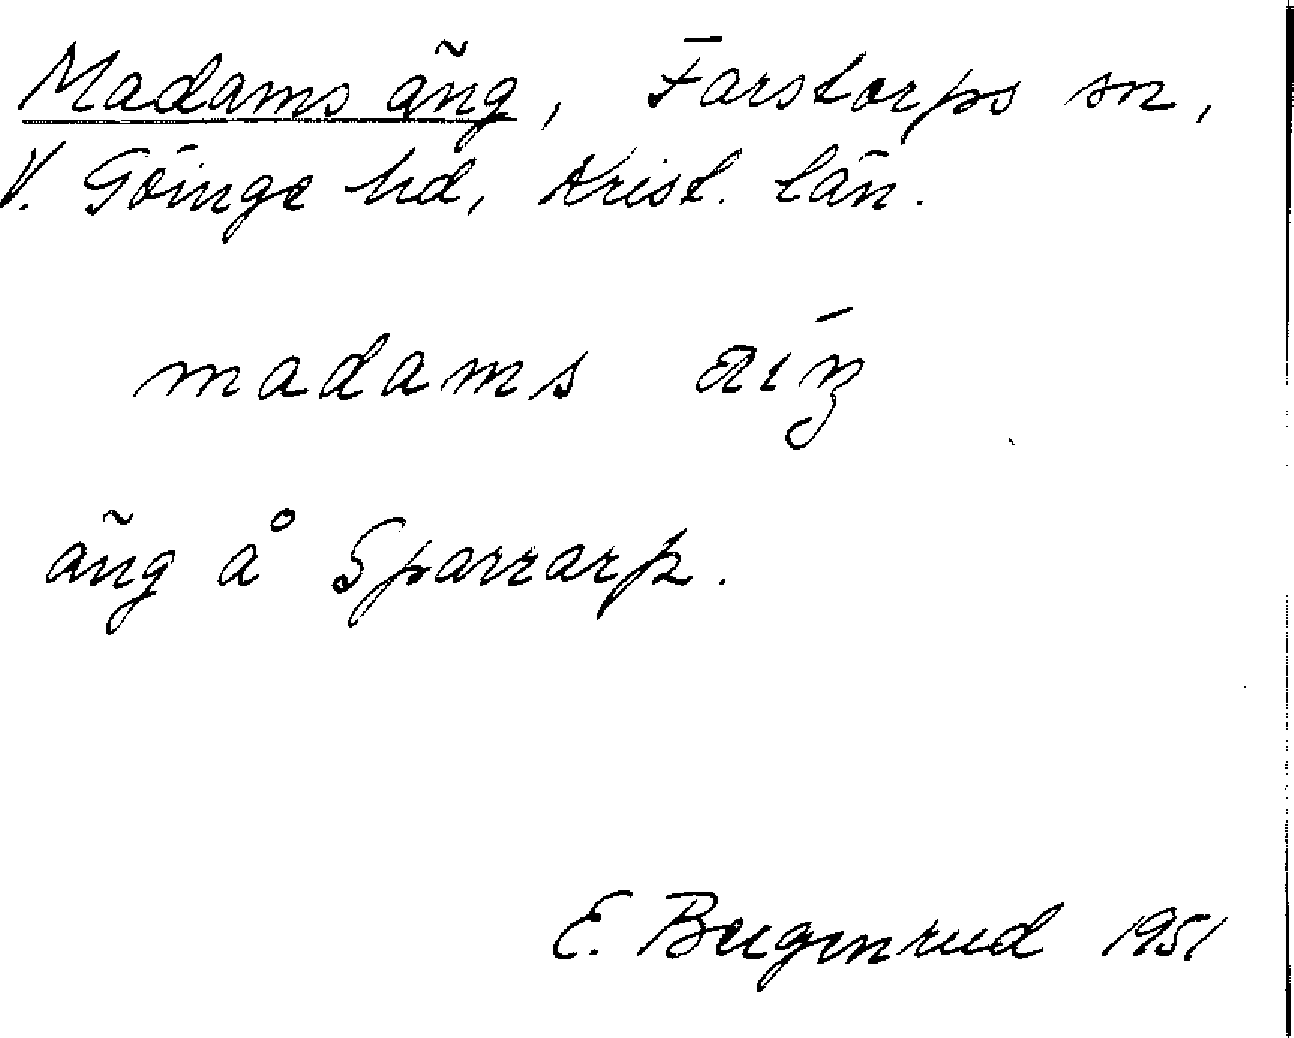 Madams äng, Farstorps sn,
V. Göinge hd, Krist. län.
madams
äng å Sparrarp.
E. Bugenrud 1951